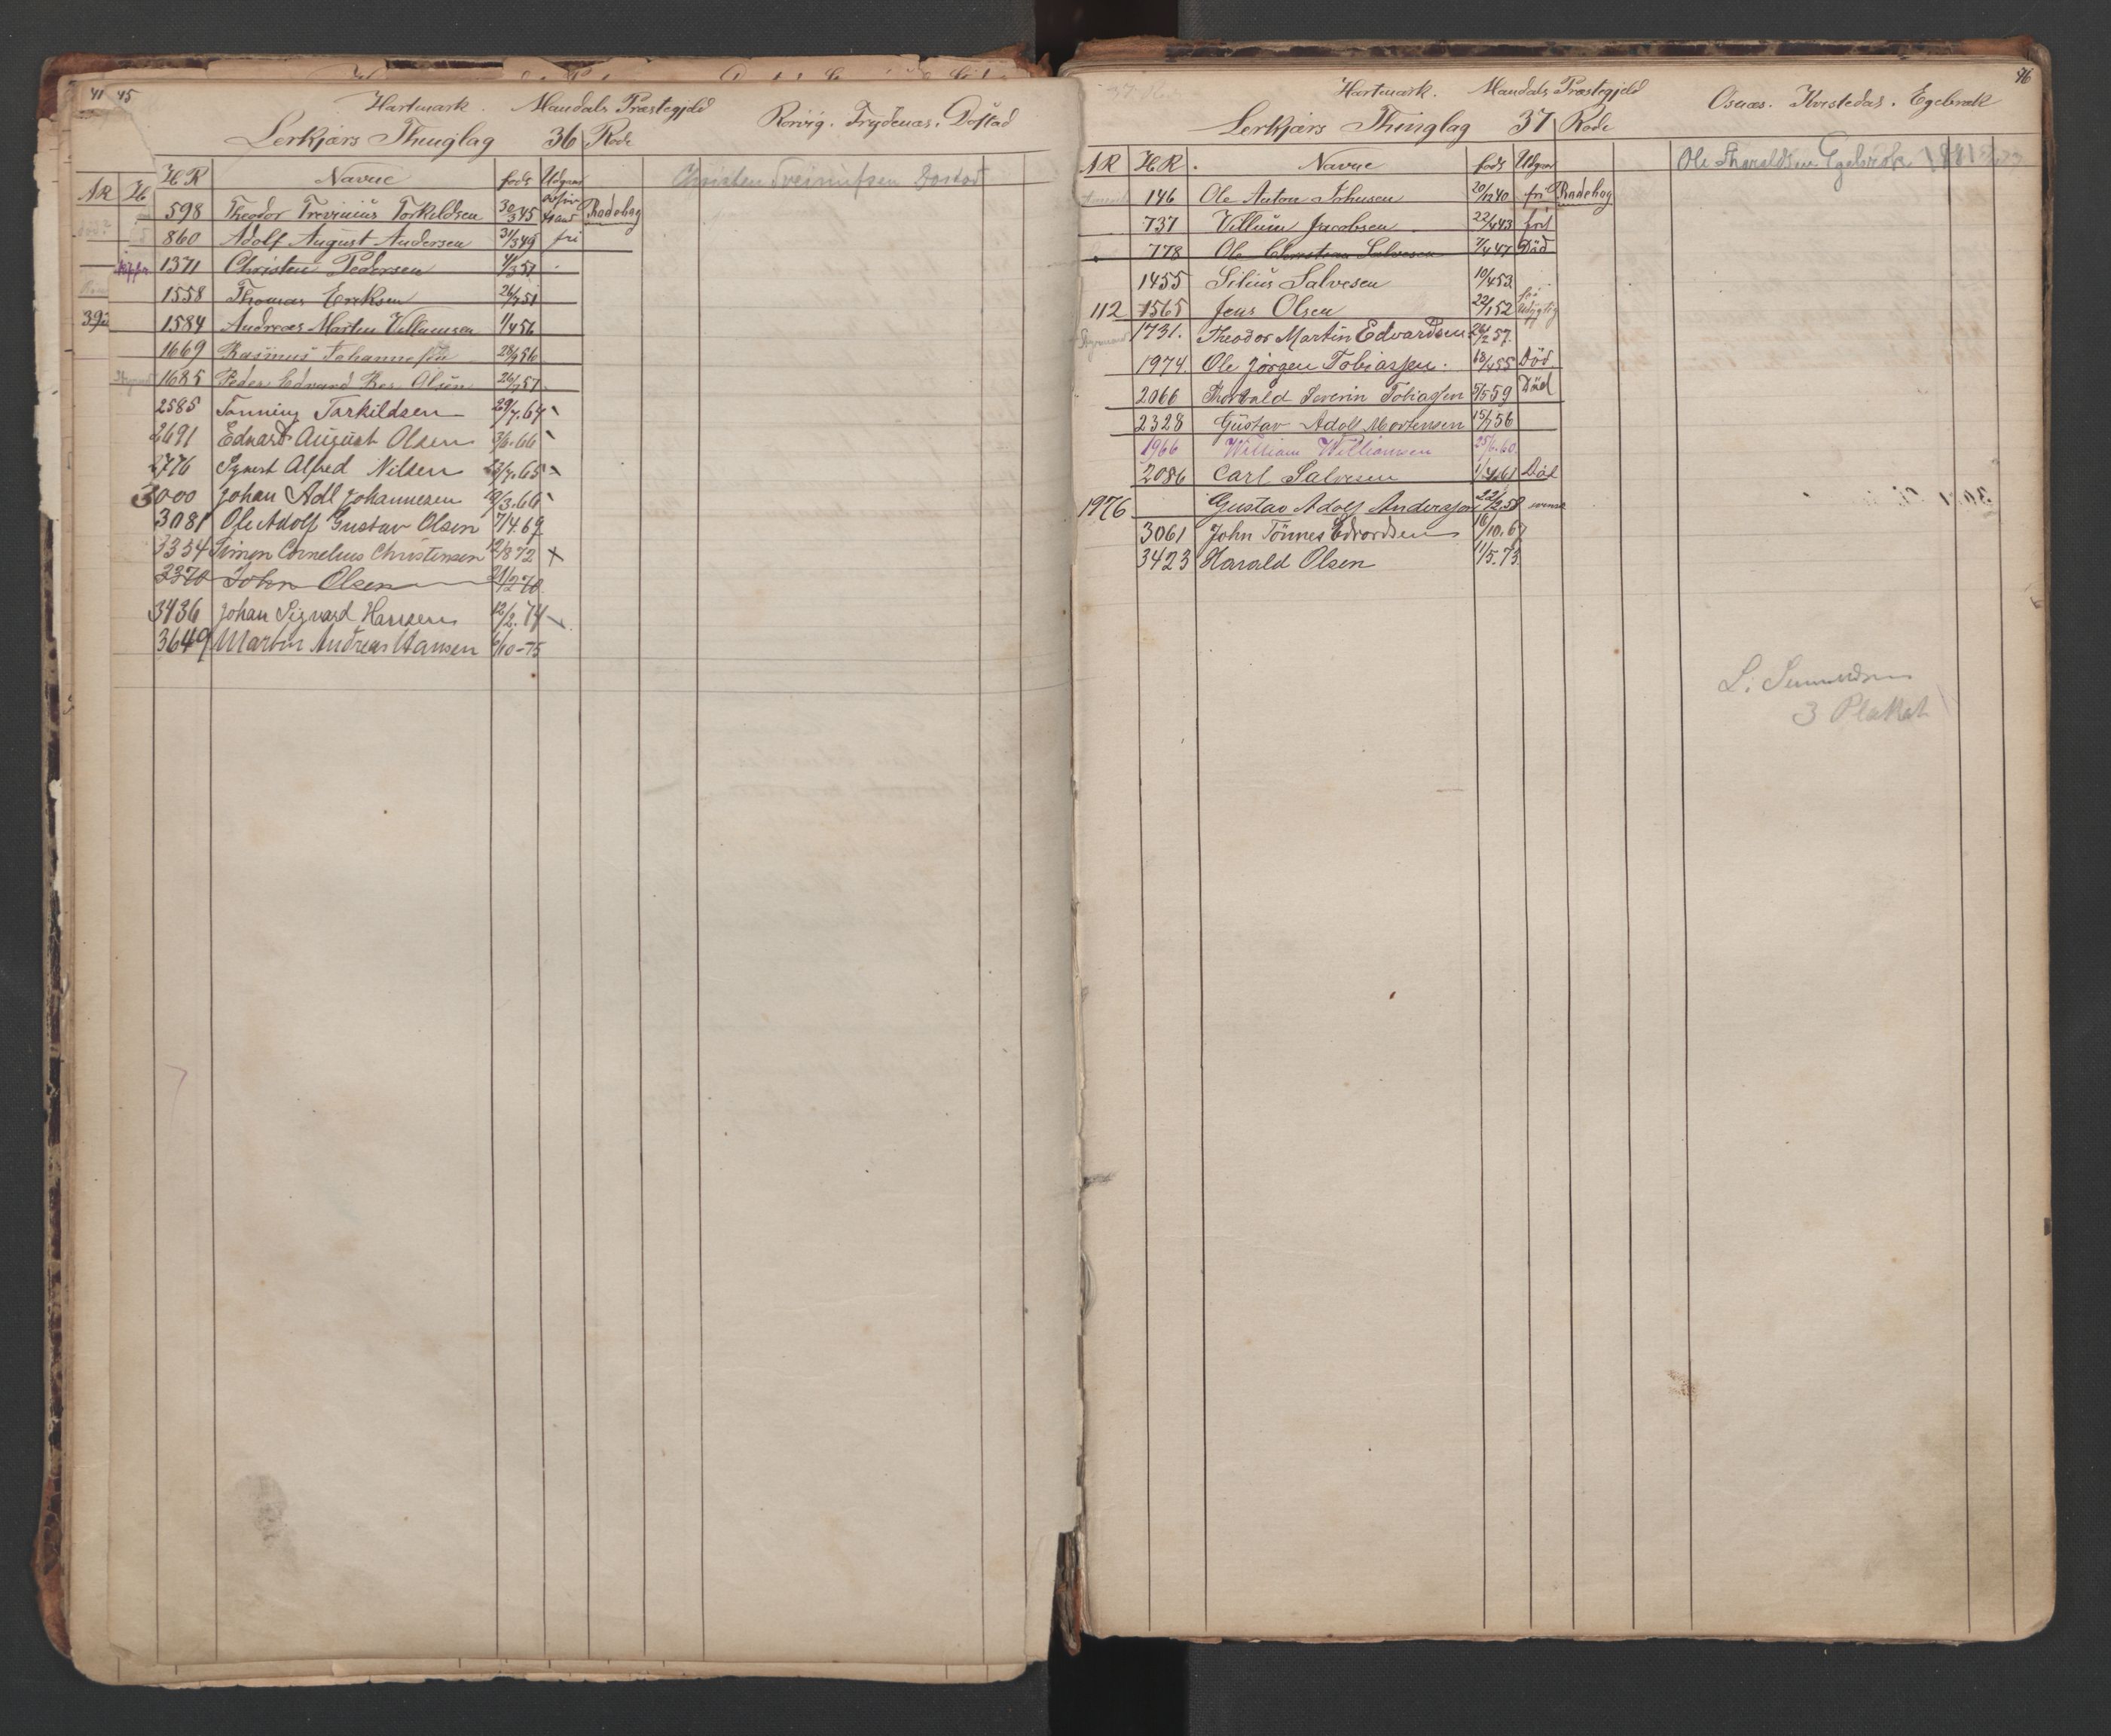 41 45
Hartmark. Mandals Præstegjeld Rorvig. Frydenæs. Dåstad
Lerkjærs Thinglag 36 Rode
AR H HR Navne født Udgaar
Christen Dostad
598 Theodor Trevinius Torkildsen 30/3 45 Rodebog
860 Adolf August Andersen 31/3 49 fri
1371 Christen Pedersen 4/3 51
1558 Thomas Eriksen 26/7 51
392 1584 Andreas Martin Villumsen 1/4 56
1669 Rasmus Johannessen 28/9 56
1685 Peder Edvard Olsen 26/9 57
2585 Tønning Tarkildsen 29/7.64
2691 Edvard August Olsen 3/6.66
2776 Syvert Alfred Nilsen 23/7.65
3000 Johan Adl Johannesen 19/3.66
3081 Ole Adolf Gustav Olsen 7/4.69
3354 Simon Cornelius Christensen 12/8 72 x
3370 John Olsen 21/2 70
3436 Johan Sigvard Hansen 12/2.74
3649 Martin Andreas Hansen 6/10-75
46
Hartmark. Mandals Præstegjeld Osnæs. Kvistedal. Egebræk
Lerkjærs Thinglag 37 Rode
AR HR. Navne født Udgaar
Ole Egebræk
146 Ole Anton Johnsen 20/12 40 fri Rodebog
737 Villum Jacobsen 22/4 43 fri
778 Ole Christian Salvesen 7/4 47 Død
1455 Silius Salvesen 10/4 53
112 1565 Jens Olsen 22/1 52
1731. Theodor Martin Edvardsen 26/2 57.
1974. Ole Jørgen Tobiassen. 18/4 55 Død
2066 Thorvald Severin Tobiassen 5/5 59 Død
2328 Gustav Adolf Mortensen 15/7 56
1966 William Williamsen 25/6.60.
2086 Carl Salvesen 1/4 61 Død
1976 Gustav Adolf Andersson 22/2.58
3061 John Tönnes Edvardsen 16/10.67
3423 Harald Olsen 11/5.73
3 Plakat